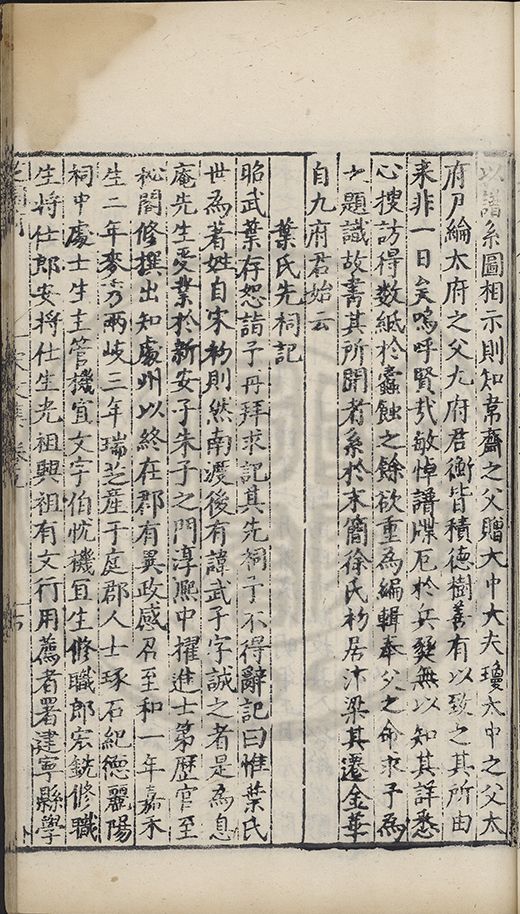 以譜系圖相示則知韋齋之父贈大中大夫瓊大中之父太
府尹綸太府之父九府君衝皆積德樹善有以致之其所由
来非一日矣嗚呼賢㢤敏悼譜牒厄於兵燹無以知其詳悉
心搜訪得数紙於蠹蝕之餘欲重為編輯奉父之命求予為
題識故書其所聞者系於末簡徐氏初居汴梁其遷金華
自九府君始云
葉氏先祠記
昭武葉存恕詣予再拜求記其先祠予不得辭記曰惟葉氏
世為著姓自宋初則然南渡後有諱武子字誠之者是為息
庵先生受業於新安子朱子之門淳熈中擢進士第歷官至
秘閣修撰出知處州以終在郡有異政感召至和一年嘉禾
生二年麥秀兩岐三年瑞芝産于庭郡人士琢石紀德麗陽
祠中處士生主管機宜文字伯忱機宜生修職郎宏銑修職
生將仕郎安將仕生光祖興祖有文行用薦者署建寧縣學